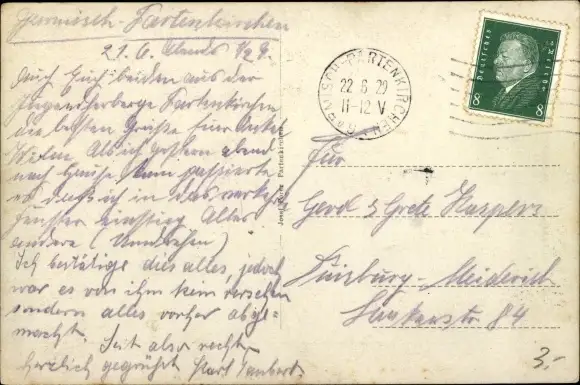 Garmisch-Partenkirchen
21.6. Abends 1/2 9.
Auch Euch beiden aus der
Jugendherberge Partenkirchen
die besten Grüße für Onkel
Als ich gestern abend
nach Hause kam passierte
es daß ich in das
einstieg Alles
andere (
Ich bestätige dies alles, jedoch
war es von ihm kein versehen
sondern alles vorher abge-
macht. Seid also recht
herzlich gegrüßt Karl
Partenkirchen
GARMISCH-PARTENKIRCHEN
22.6.29
11-12 V
Deutsches Reich
8 8
Für
Gerd & Grete Kaspers
Duisburg-Meiderich
84
3.-